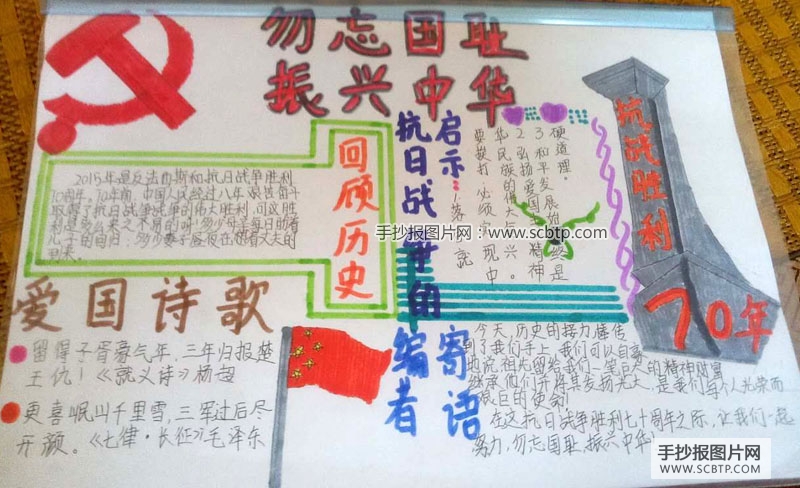 勿忘国耻
振兴中华
回顾历史
2015年是反法西斯和抗日战争胜利
70周年，70年前，中国人民经过八年艰苦奋斗
取得了抗日战争战争的伟大胜利，可这胜
利是多么来之不易的啊！多少母亲每日盼着
儿子的回归，多少妻子昼夜在想着丈夫的
爱国诗歌
留得子胥豪气在，三年归报楚
王仇！《就义诗》杨超
更喜岷山千里雪，三军过后尽
开颜。《七律·长征》毛泽东
抗日战争的
启示：
1落
就
要挨打
必须
华民族的伟大
兴中
2弘扬爱国
精神
3和平发展
经是
硬道理。
手抄报图片网：www.scbtp.com
编者
寄语
今天，历史的接力棒传
到了我们手上，我们可以自豪
地说祖先留给我们一笔巨大的精神财富
继承他们并将其发扬光大，是我们每个人光荣而
艰巨的使命！
在这抗日战争胜利七十周年之际，让我们一起
努力，勿忘国耻，振兴中华！
抗战胜利
70年
手抄报图片网
WWW.SCBTP.COM